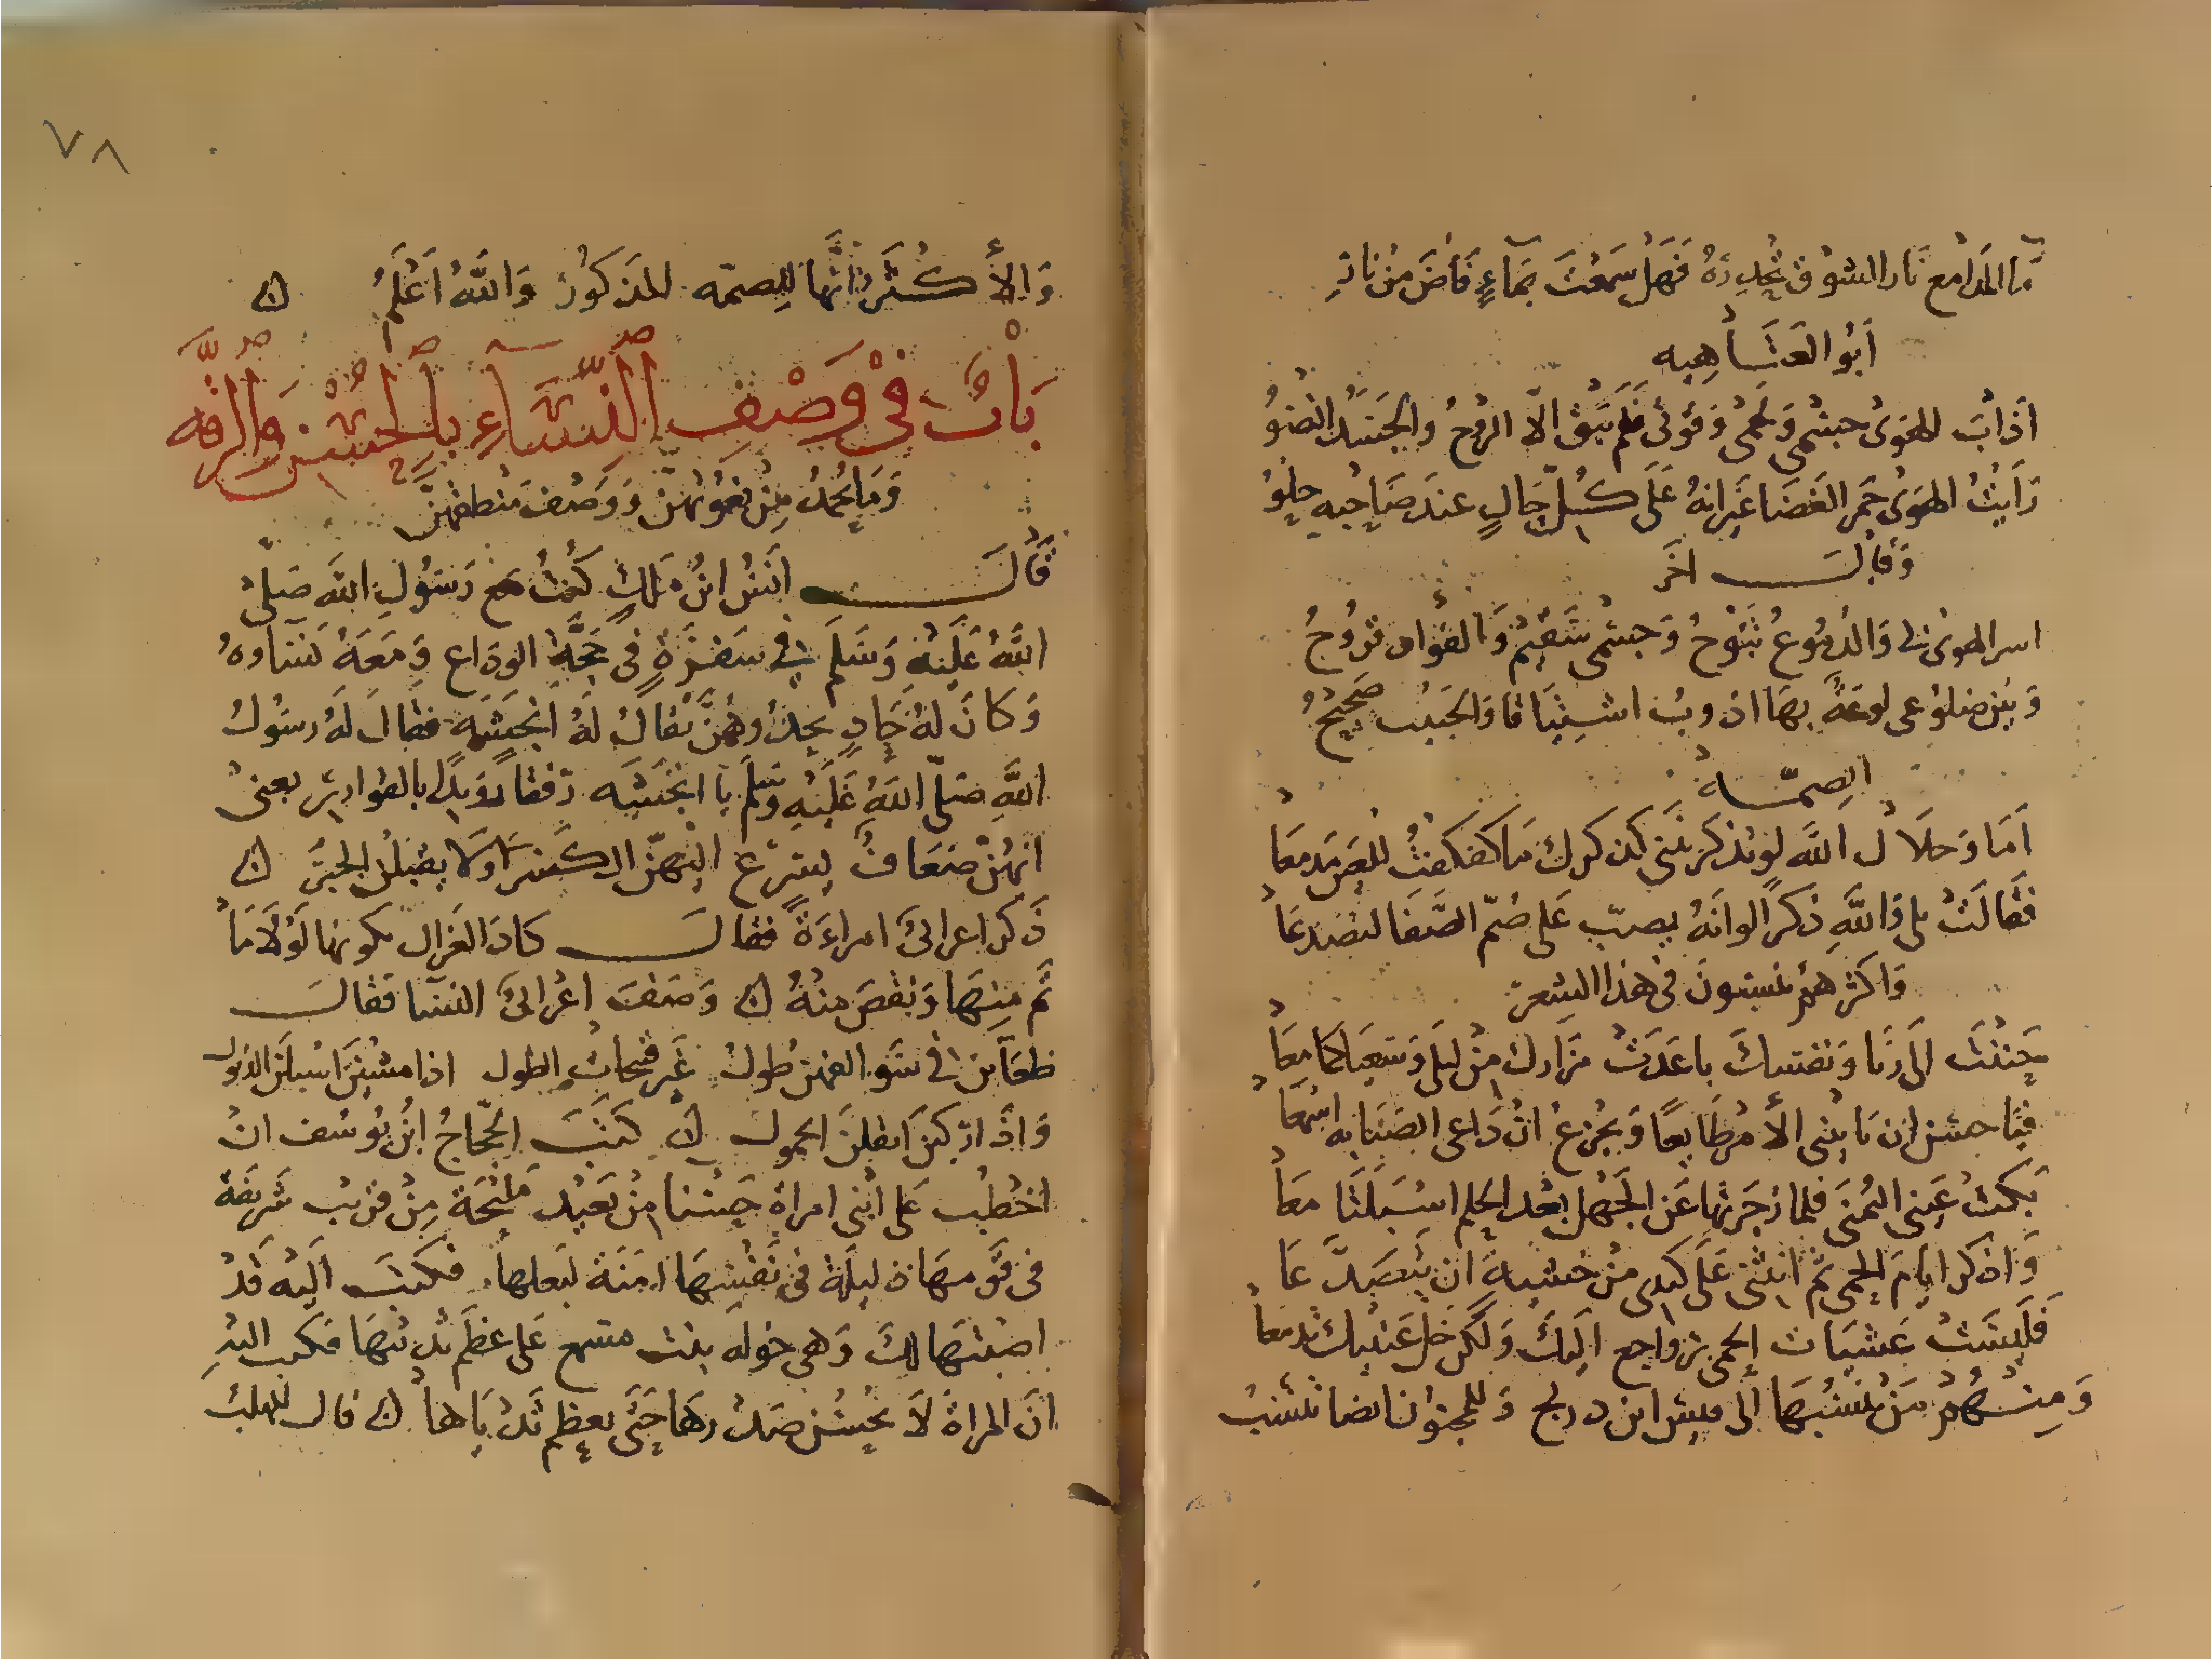 ما المدامع نار الشوق تحدره فهل سمعت بماء فاض من نار
أبو العتاهيه
أذاب الهوى جسمي ولحمي وقوتي فلم يبق الا الروح والجسد النضو
رأيت الهوى جمر الغضا غير انه على كل حال عند صاحبه حلو
وقال اخر
اسر الهوى والدموع تبوح وجسمي سقيم والفواد قروح
وبين ضلوعي لوعة بها اذوب اشتياقا والحبيب صحيح
الصمّة
أما وجلال الله لو تذكرينني كذكرك ما كفكفت للعين مدمعا
فقالت بلى والله ذكرا لو انه يصب على صم الصفا لتصدعا
واكثرهم ينسبون في هذا الشعر
حننت الى ريا ونفسك باعدت مزارك من ليلى وشعباكما معا
فما حسن ان تاتي الأمر طايعا وتجزع ان داعي الصبابه اسمعا
بكت عيني اليمنى فلما زجرتها عن الجهل بعد الحلم اسبلتا معا
واذكر ايام الحمى ثم انثنى على كبدي من خشية ان تصدعا
فليست عشيات الحمى برواجع اليك ولكن خل عينيك تدمعا
ومنهم من ينسبها الى قيس ابن دريج وللمجنون ايضا تنسب
٧٨
والأكثر انها للصمه المذكور والله أعلم
باب في وصف النساء بالحسن والرقه
وما يحمد من نعوتهن ووصف منطقهن
قال انس ابن مالك كنت مع رسول الله صلى
الله عليه وسلم في سفرة في حجة الوداع ومعه نساوه
وكان له حاد يحدو بهن يقال له انجشه فقال له رسول
الله صلى الله عليه وسلم يا انجشه رفقا رويدا بالقوارير يعنى
انهن ضعاف يسرع اليهن الكسر ولا يقبلن الجبر
ذكر اعرابي امراءة فقال كاد الغزال يكونها لولا ما
تم منها ونقص منه وصف اعرابي النسا فقال
ظعاين في طول غير قبيحات الطول اذا مشين اسبلن الذيول
واذا ركبن اثقلن الحمول كتب الحجاج ابن يوسف ان
اخطب على ابني امراة حسنا من بعيد مليحة من قريب شريفة
في قومها ذليلة في نفسها امنة لبعلها فكتب اليه قد
اصبتها لك وهي خوله بنت مسمع على عظم ثدييها فكتب اليه
ان المراة لا يحسن صدرها حتى يعظم ثدياها قال المهلب